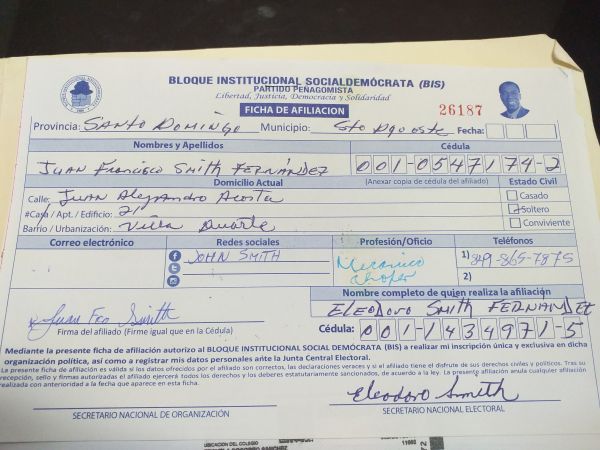 BLOQUE INSTITUCIONAL SOCIALDEMÓCRATA (BIS)
PARTIDO PEÑAGOMISTA
Libertad, Justicia, Democracia y Solidaridad
FICHA DE AFILIACION 26187
Provincia: SANTO DOMINGO Municipio: Sto Dgo oeste Fecha:
Nombres y Apellidos Cédula
JUAN FRANCISCO SMITH FERNÁNDEZ 001-0547174-2
Domicilio Actual (Anexar copia de cédula del afiliado) Estado Civil
Calle: Juan Alejandro Acosta Casado
#Casa / Apt. / Edificio: 21 Soltero
Barrio / Urbanización: Villa Duarte Conviviente
Correo electrónico Redes sociales Profesión/Oficio Teléfonos
JOHN SMITH Mecanico 1) 849-865-7875
chofer 2)
Nombre completo de quien realiza la afiliación
Juan Fco Smith ELEODORO SMITH FERNANDEZ
Firma del afiliado (Firme igual que en la Cédula) Cédula: 001-1434971-5
Mediante la presente ficha de afiliación autorizo al BLOQUE INSTITUCIONAL SOCIAL DEMÓCRATA (BIS) a realizar mi inscripción única y exclusiva en dicha
organización política, así como a registrar mis datos personales ante la Junta Central Electoral.
La presente ficha de afiliación es válida si los datos ofrecidos por el afiliado son correctos, las declaraciones veraces y si el afiliado tiene el disfrute de sus derechos civiles y políticos. Tras su
recepción, sello y firmas autorizadas el afiliado ejercerá todos los derechos y los deberes estatutariamente sancionados, de acuerdo a la ley. La presente afiliación anula cualquier afiliación
realizada con anterioridad a la fecha que aparece en esta ficha.
Eleodoro Smith
SECRETARIO NACIONAL DE ORGANIZACIÓN SECRETARIO NACIONAL ELECTORAL
UBICACION DEL COLEGIO